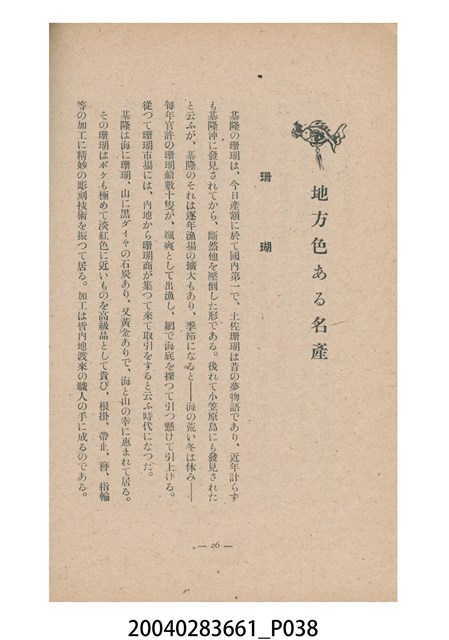 地方色ある名産
珊瑚
基隆の珊瑚は、今日産額に於て國內第一で、土佐珊瑚は昔の夢物語であり、近年計らず
も基隆沖に發見されてから、斷然他を壓倒した形である。後れて小笠原島にも發見された
と云ふが、基隆のそれは逐年漁場の擴大もあり、季節になると——海の荒い冬は休み——
每年官許の珊瑚船數十隻が、颯爽として出漁し、網で海底を探つて引つ懸けて引上げる。
從つて珊瑚市場には、內地から珊瑚商が集つて來て取引をすると云ふ時代になつた。
基隆は海に珊瑚、山に黑ダイヤの石炭あり、又黃金ありで、海と山の幸に惠まれて居る。
その珊瑚はボケも極めて淡紅色に近いものを高級品として貴び、根掛、帶止、簪、指輪
等の加工に精妙の彫刻技術を振つて居る。加工は皆內地渡來の職人の手に成るのである。
— 26 —
20040283661_P038